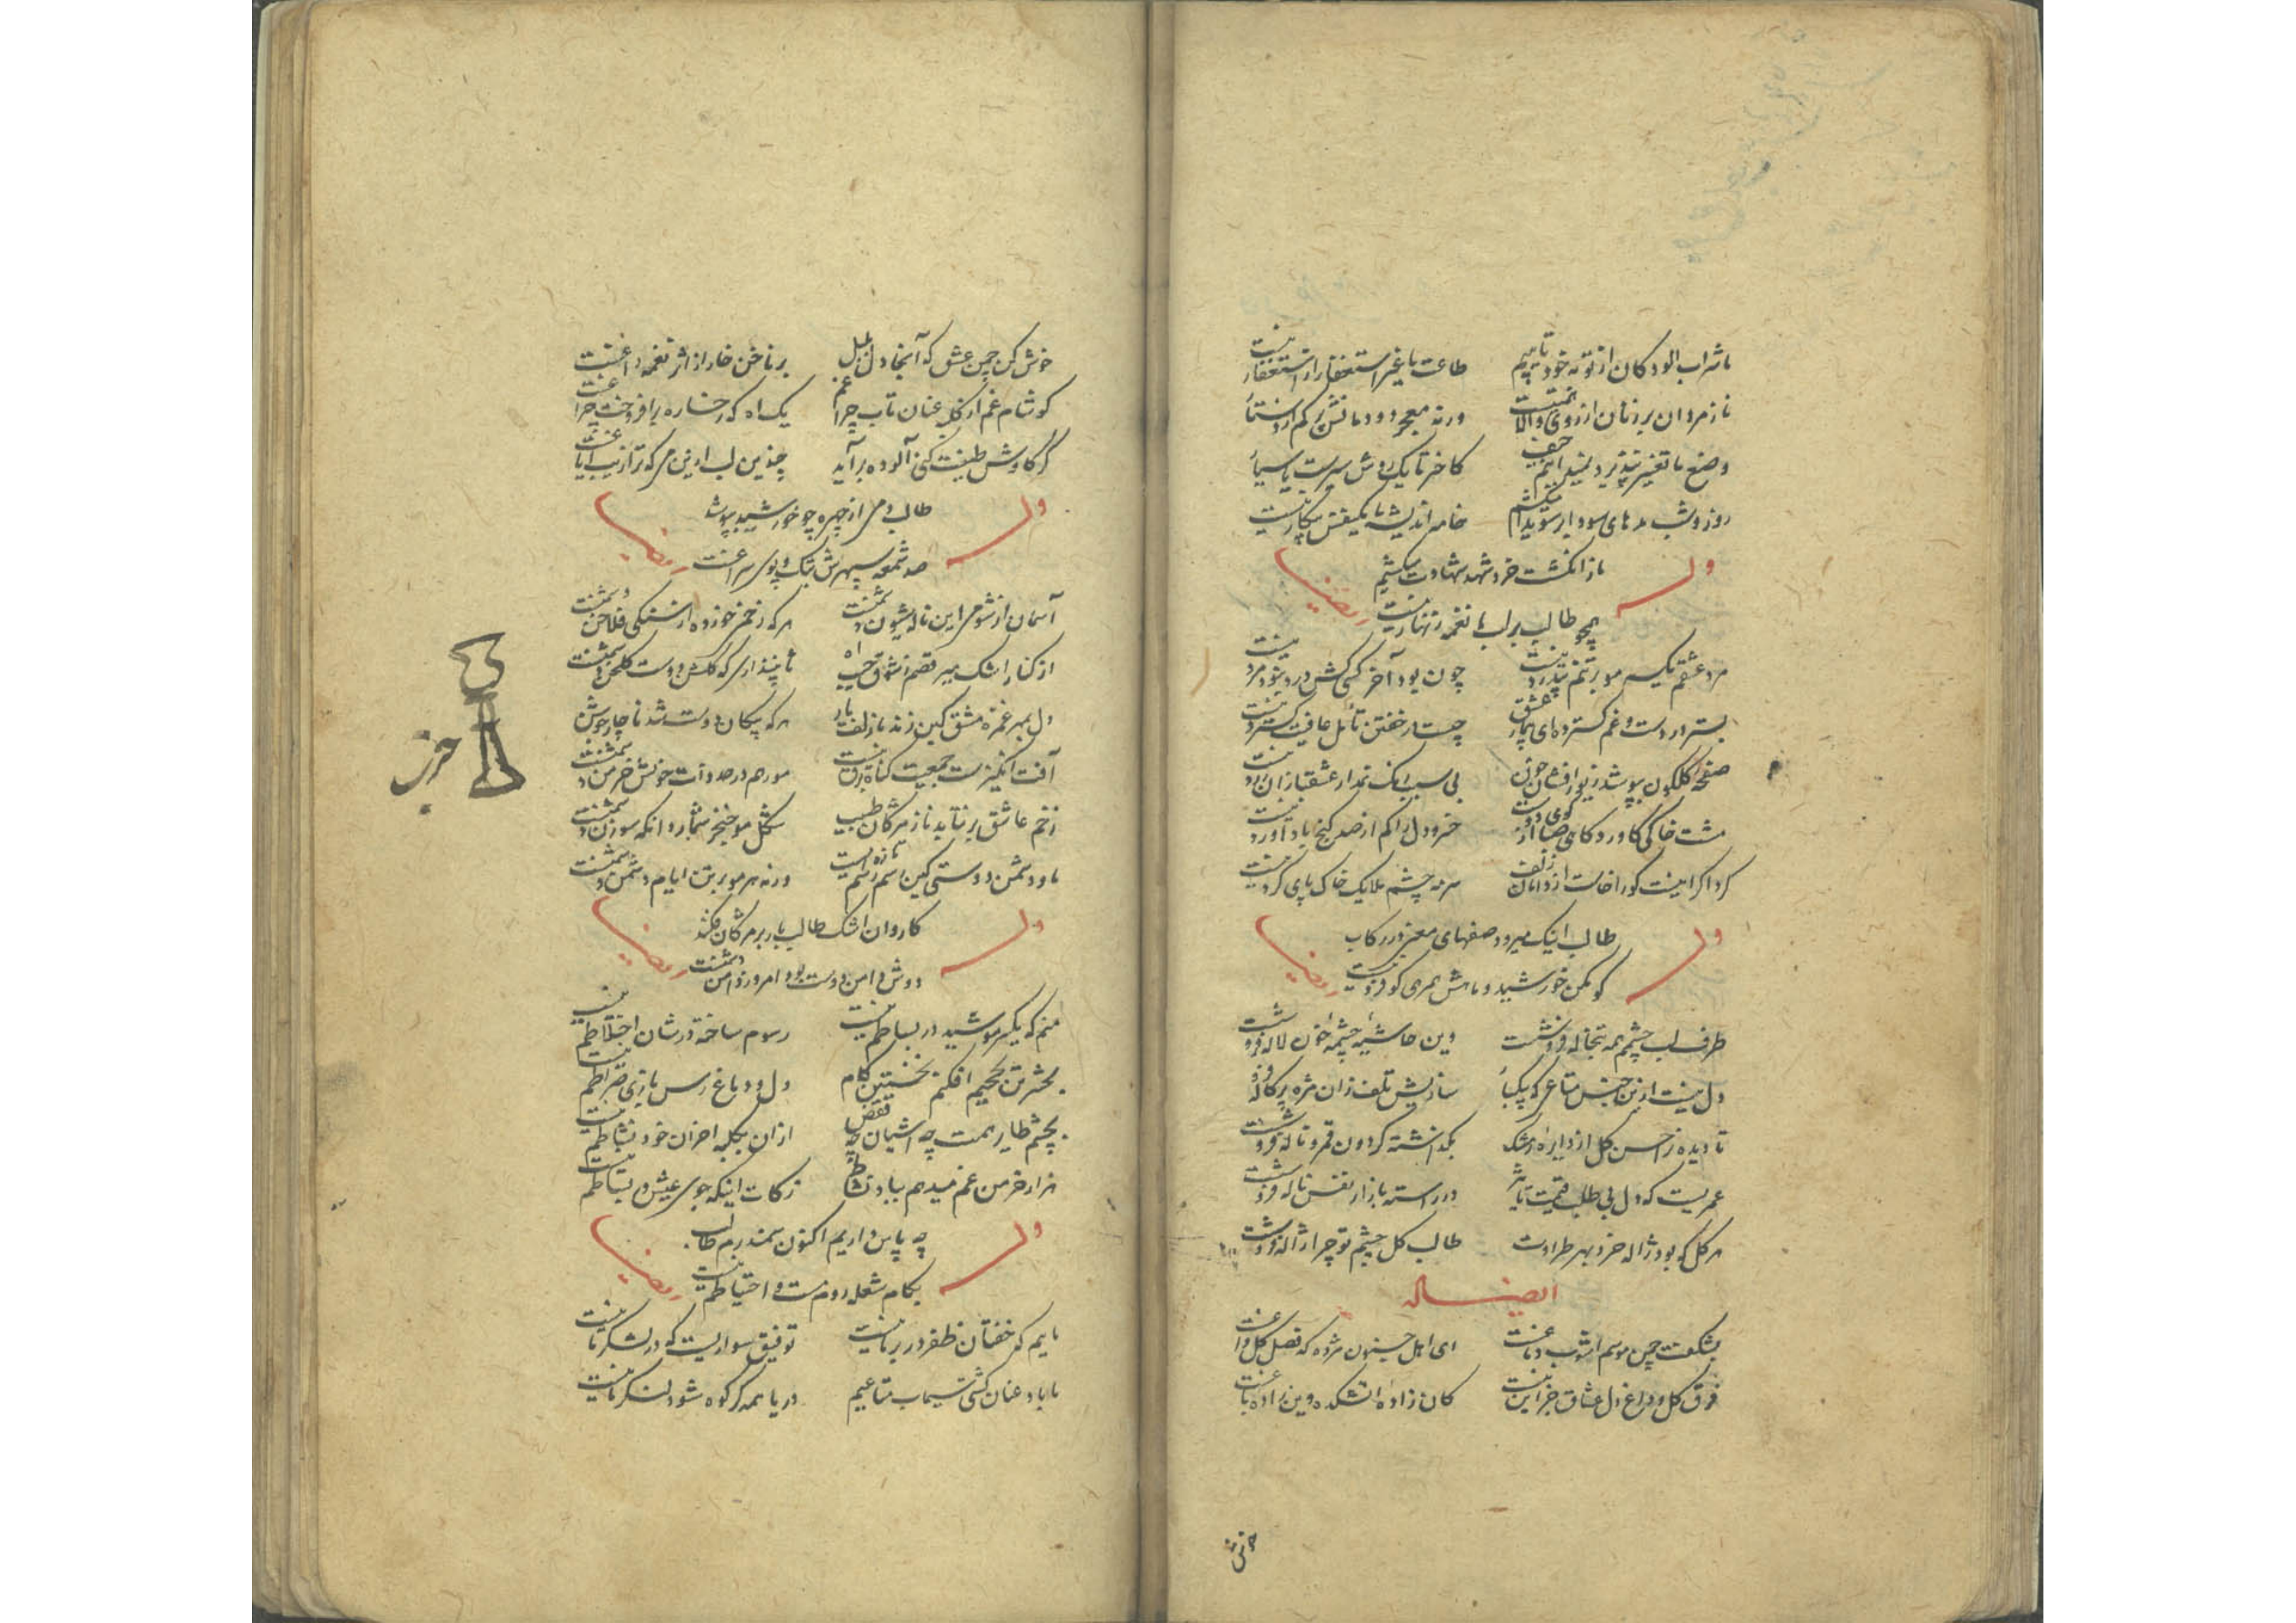 ما شراب الودکان از توبه خود تاییم طاعت ما غیر استغفار از استغفار نیست
ناز مردان بر زنان از روی والا همتیست ورنه معجر دودمانش کم از دستار
وضع ما تغییر نپذیرد نمیدانیم حیف کاخر تا یک روش سیرت یا سیما
روز و شب مدهای سودا بر سویدا میکشم خامه اندیشه ما یکنفس بیکار نیست
وله
باز انگشت خرد شهد شهادت میکشیم
همچو طالب بر لب ما نغمه زنهار نیست
ایضا
مرد عشقم یکسر مو بر تنم بیدرد نیست چون بود آخر کسی کش درد نبود مرد نیست
بستر درد است و غم گسترده‌ای بیمار عشق چیست در خفتن تأمل عافیت گسترد نیست
صفحه گلگون بپوشد زیور افشان خون بی سبب رنگ عذار عشقبازان زرد نیست
مشت خاکی کاورد کاهی صبا از کوی دوست خسرو دل را کم از صد گنج باد آورد نیست
گرد اگر اینست کورا خاست از دامان زلف سرمه چشم ملایک خاک پای گرد نیست
وله
طالب اینک میرود صفهای معنی در رکاب
گو مکن خورشید و ماهش همرهی گو فرد نیست
ایضا
طرف لب چشمم همه تبخاله فروشست وین حاشیه چشمه خون لاله فروشست
دل نیست ازین جنس متاعی که
تا دیده ز حسن گل از دایره اشک بگذاشته گردون قمر و ناله فروشست
عمریست که دل بی طلب قیمت تأثیر در راسته بازار نفس ناله فروشست
هر گل که بود ژاله خرد بهر طراوت طالب گل چشم تو چرا ژاله فروشست
ایضا له
بشکفت چمن موسم آشوب دماغست ای اهل جنون مژده که فصل گل و داغست
فرق گل و داغ دل عشاق جز این نیست کان زاده آتشکده وین زاده باغست
خوش
خوش کن چمن عشق که آنجا دل بلبل بر ناخن خار از اثر نغمه داغست
کو شام غم از فکر عنان تاب چرا غم یک آه که رخساره برافروخت چراغست
گر کاوش طبعت کنی آلوده برآید
وله
طالب دمی از چهره چو خورشید بپوشد
صد شمعه سپهرش بتک و پوی سراغست
ایضا
آسمان از شومی این ناله و شیون دشمنست هر که زخمی خورده از سنگی فلاخن دشمنست
از کنار اشک میرقصم بشوق جیب آه تا نپنداری که گلشن دوست گلخن دشمنست
دل بمهر غمزه مشق کین زند با زلف یار هر که پیکان دوست شد ناچار جوشن
آفت انگیزست جمعیت گناه برق نیست مور هم در حد ذات خویش خرمن دشمنست
زخم عاشق برنتابد ناز مژگان طبیب شکل مو خنجر شمارد وانکه سوزن دشمنست
ما و دشمن دوستی کین اسم و رسم تازه است ورنه هر مو بر تن ایام دشمن دشمنست
وله
کاروان اشک طالب بار بر مژگان فکند
دوش دامن دوست بود امروز دامن دشمنست
ایضا
منم که یکسر مو شید در بساطم نیست رسوم ساخته در شان اختلاطم نیست
بحشر تن بجحیم افکنم نخستین گام دل و دماغ رسن بازی صراطم نیست
بچشم طایر همت چه آشیان چه قفس ازان بکلبه احزان خود نشاطم نیست
هزار خرمن غم میدهم بباد نشاط زکات اینکه جوی عیش در بساطم نیست
وله
چه پاس داریم اکنون سمندرم طالب
بکام شعله روم مست و احتیاطم نیست
ایضا
ماییم که خفتان ظفر در بر ما نیست توفیق سواریست که در لشکر ما نیست
با باد عنان کش سیماب متاعیم دریا همه گر کوه شود لنگر ما نیست